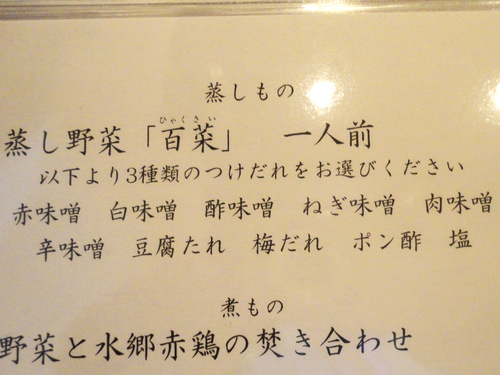 蒸しもの
ひゃくさい
蒸し野菜「百菜」 一人前
以下より3種類のつけだれをお選びください
赤味噌 白味噌 酢味噌 ねぎ味噌 肉味噌
辛味噌 豆腐たれ 梅だれ ポン酢 塩
煮もの
野菜と水郷赤鶏の焚き合わせ